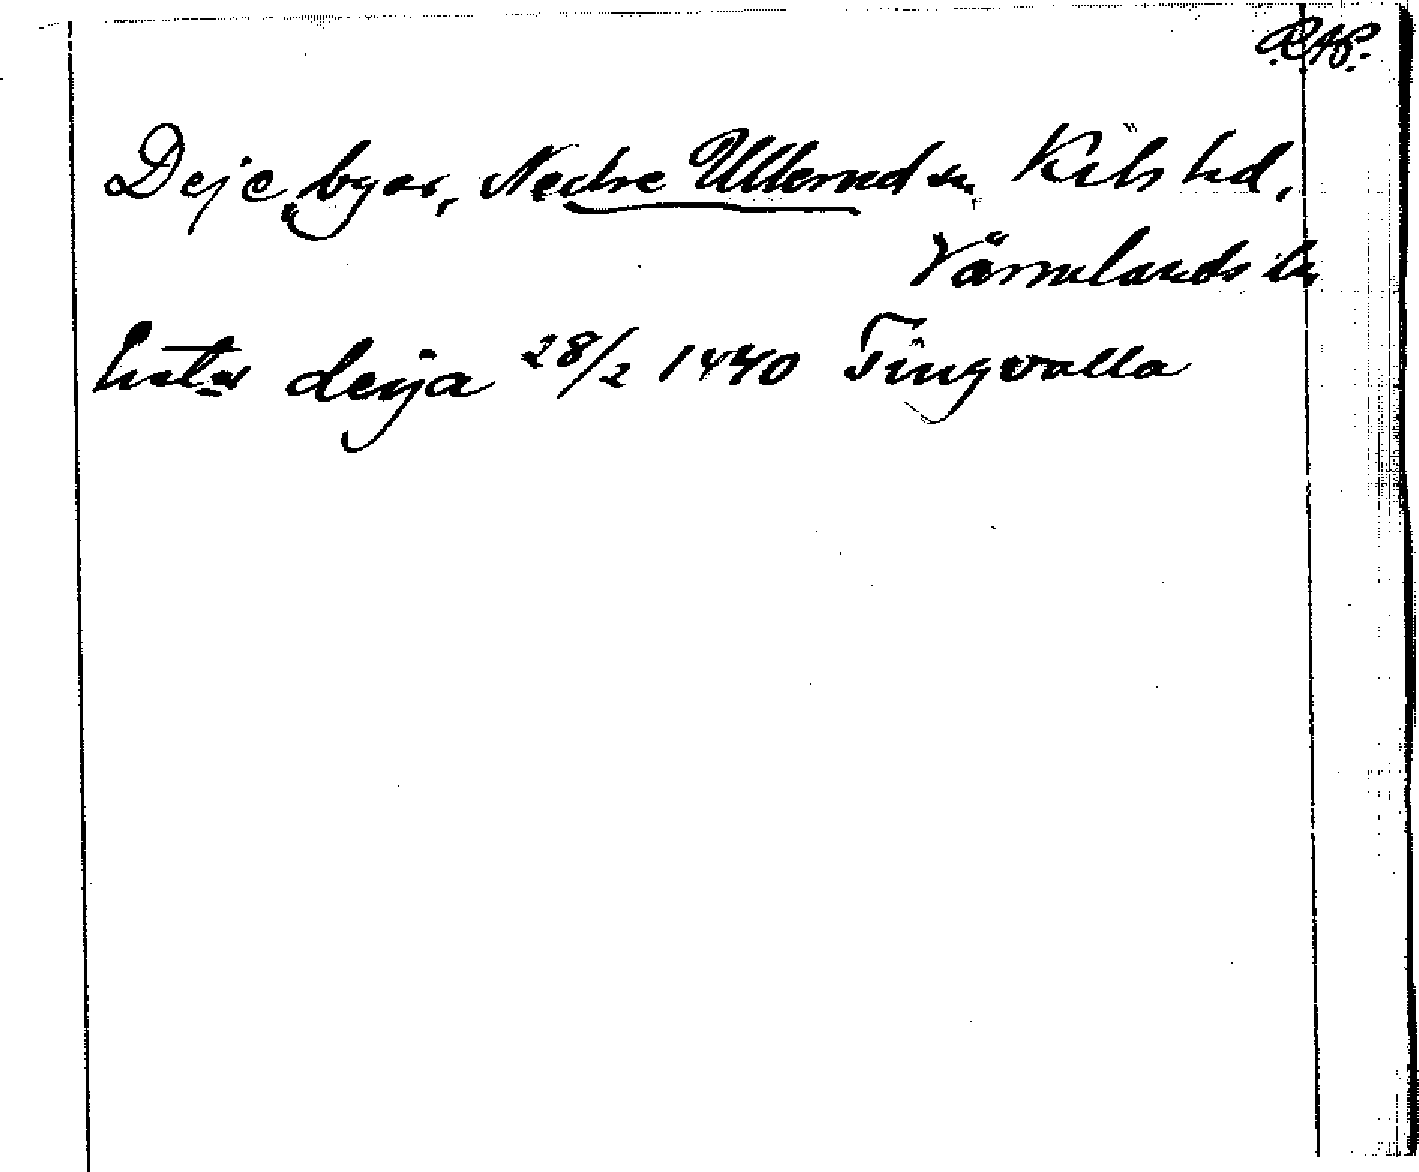 R.A.P.
Deje, byar, Nedre Ullerud sn, Kils hd,
Värmlands län
deija 28/2 1440 Tingvalla